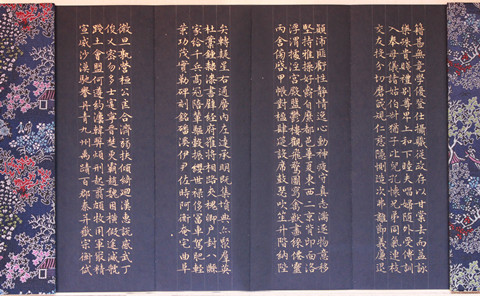 籍甚無竟學優登仕攝職從政存以甘棠去而益詠
樂殊貴賤禮別尊卑上和下睦夫唱婦隨外受傅訓
入奉母儀諸姑伯叔猶子比兒孔懷兄弟同氣連枝
交友投分切磨箴規仁慈隱惻造次弗離節義廉退
顛沛匪虧性靜情逸心動神疲守真志滿逐物意移
堅持雅操好爵自縻都邑華夏東西二京背邙面洛
浮渭據涇宮殿盤鬱樓觀飛驚圖寫禽獸畫綵僊靈
丙舍傍啓甲帳對楹肆筵設席鼓瑟吹笙升階納陛
弁轉疑星右通廣內左達承明既集墳典亦聚群英
杜稾鍾隸漆書壁經府羅將相路俠槐卿戶封八縣
家給千兵高冠陪輦驅轂振纓世祿侈富車駕肥輕
策功茂實勒碑刻銘磻溪伊尹佐時阿衡奄宅曲阜
微旦孰營桓公匡合濟弱扶傾綺迴漢惠說感武丁
俊乂密勿多士寔寧晉楚更霸趙魏困橫假途滅虢
踐土會盟何遵約法韓弊煩刑起翦頗牧用軍最精
宣威沙漠馳譽丹青九州禹跡百郡秦并嶽宗恒岱